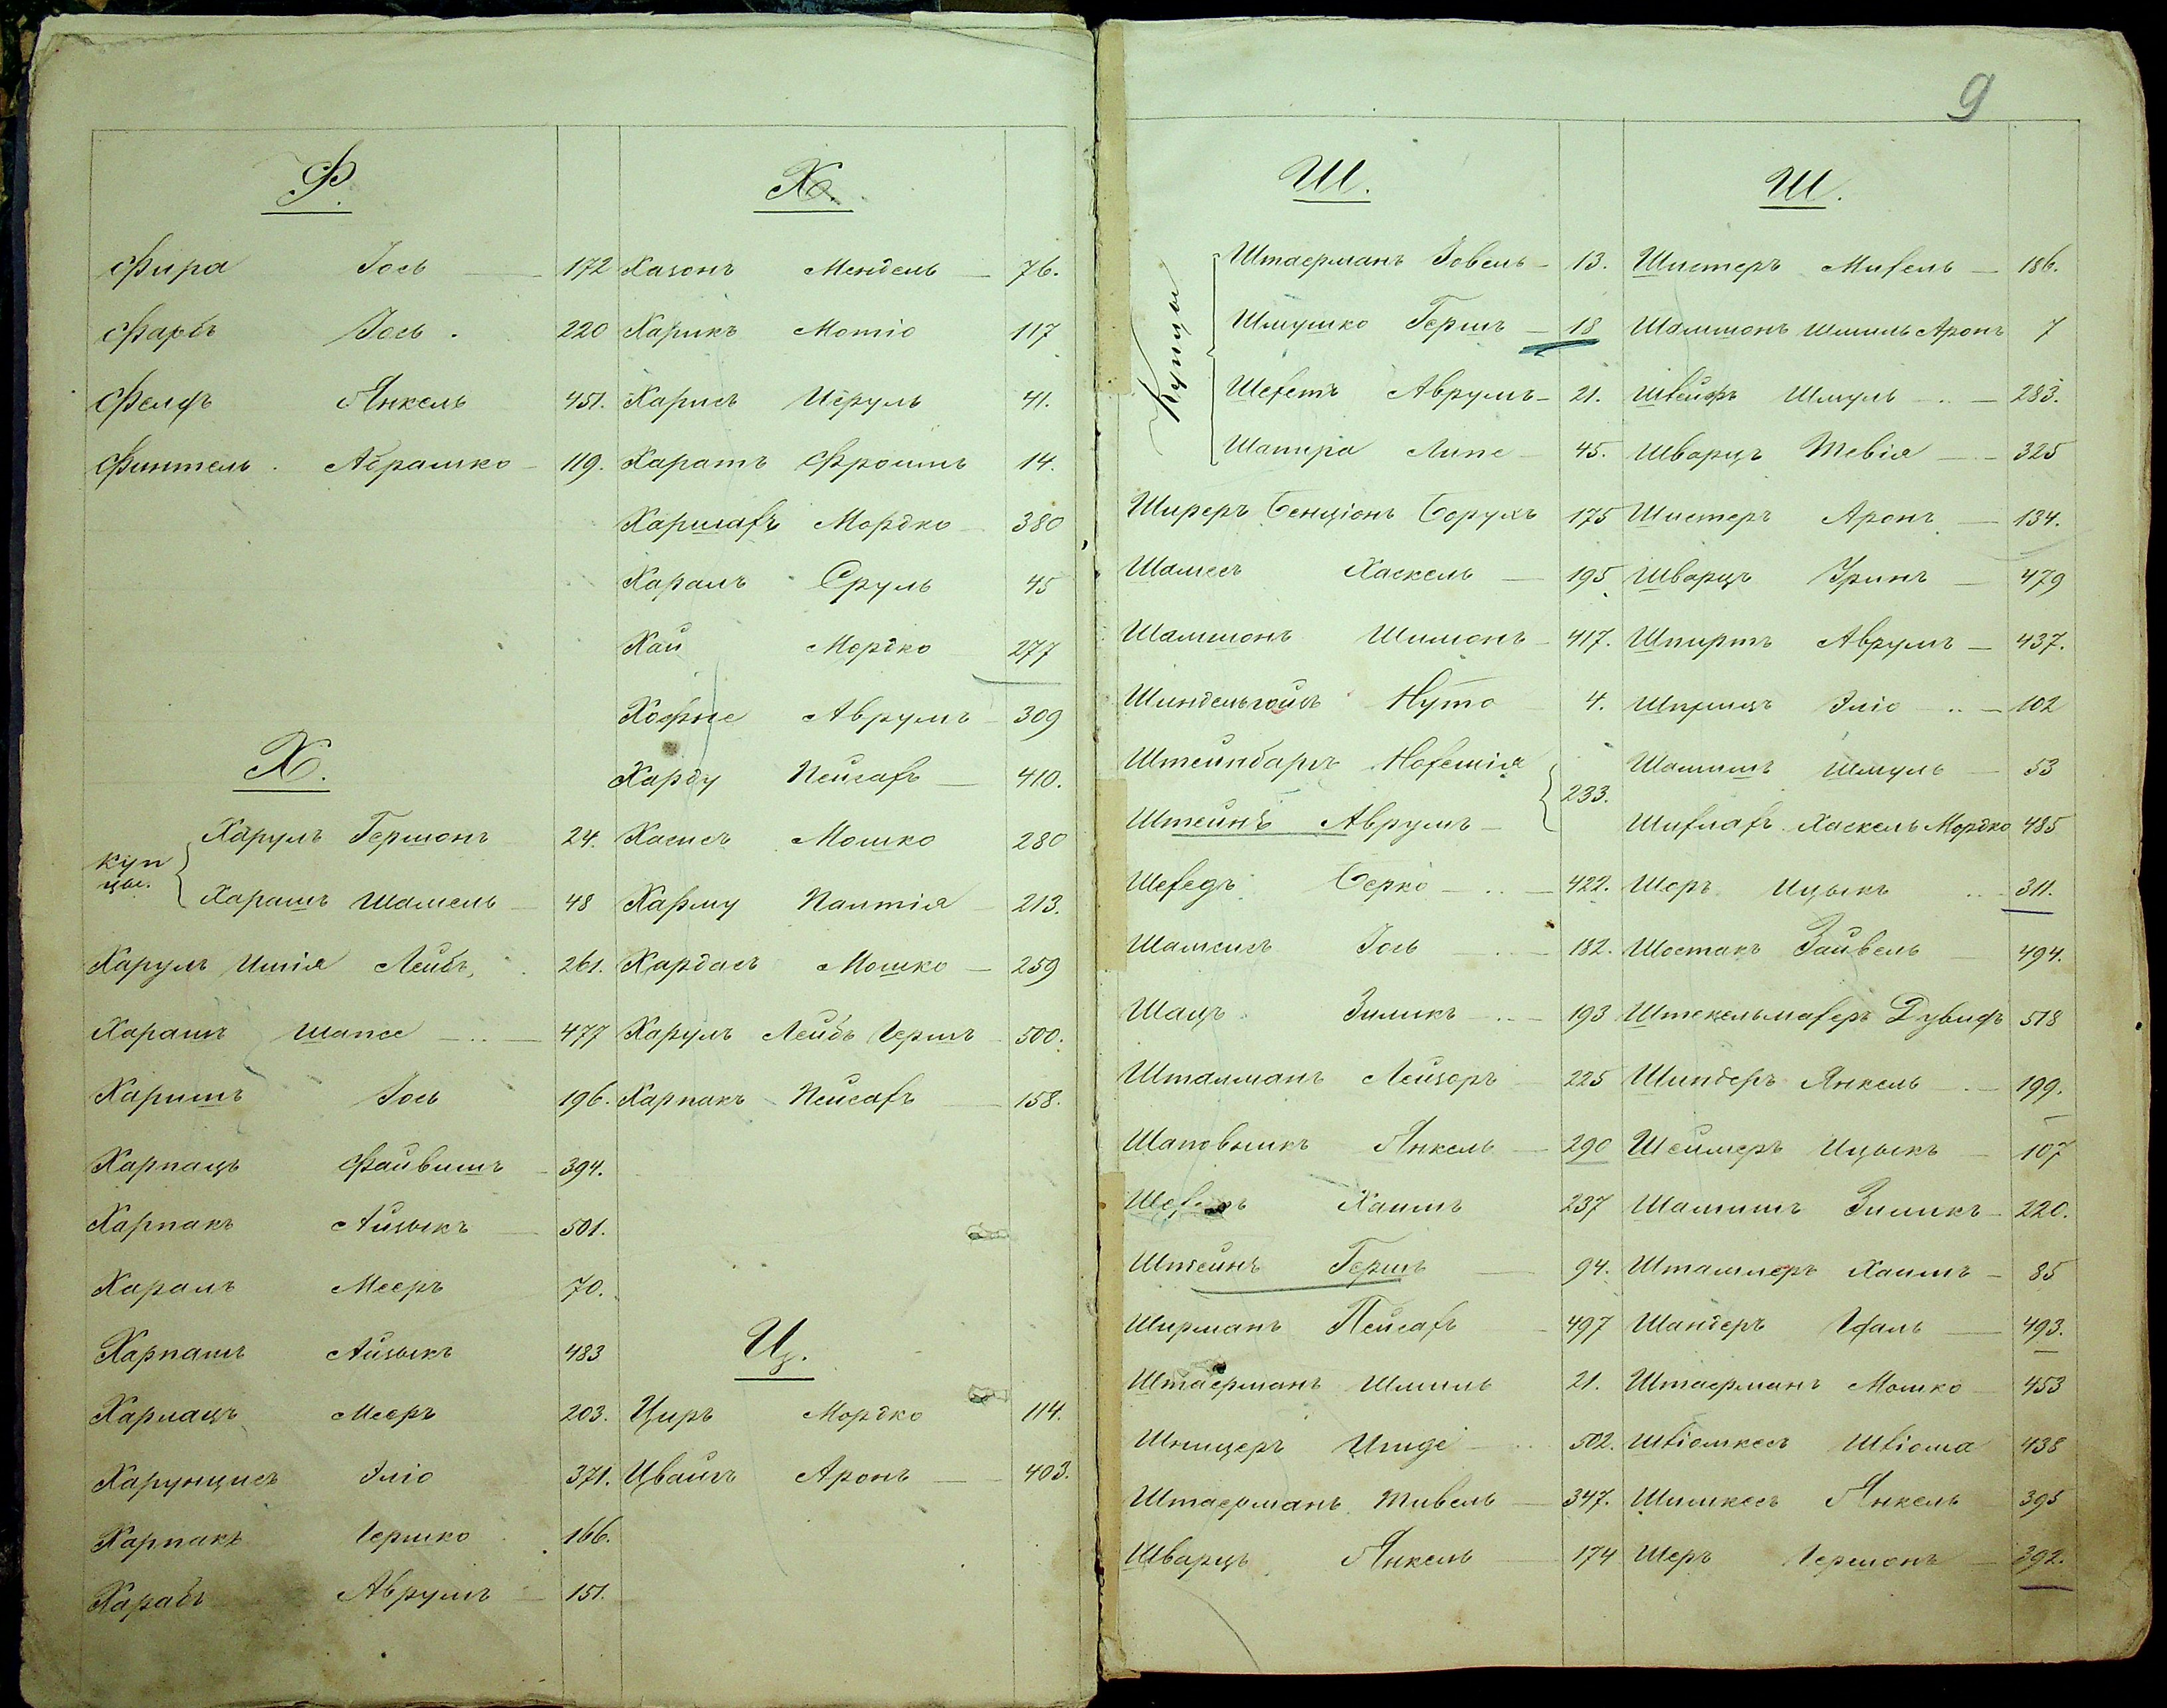 Ф.
Фира Іось 172
Фарбъ Іось 220
Фелфъ Янкель 451.
Финтель Абрашко 119.
Х.
Купцы.
Харулъ Гершонъ 24.
Харашъ Шамель 48
Харулъ Лейбъ 261.
Харашъ Шапсе 477
Харишъ Іось 196.
Харпацъ Файвишъ 394.
Харпакъ Айзыкъ 501.
Харалъ Мееръ 70.
Харпашъ Айзыкъ 483
Харпацъ Мееръ 203.
Харунцисъ Эліо 371.
Харпакъ Гершко 166.
Харабъ Аврумъ 151.
Х.
Хазонъ Мендель 76.
Харикъ Мотіо 117
Харисъ Исруль 41.
Харатъ Фроимъ 14.
Мордко 380
Харалъ Сруль 45
Хаи Мордко 277
Хофне Аврумъ 309
Харду Пейсахъ 410.
Хасисъ Мошко 280
213.
Хардасъ Мошко 259
Харулъ Лейбъ Гершъ 500.
Харпакъ Пейсахъ 158.
Ц.
Циръ Мордко 114.
Цвайгъ Аронъ 403.
9
Ш.
Купцы
Штаерманъ Іовель 13.
Шмушко Гершъ 18
Шехетъ Аврумъ 21.
Шапира Липе 45.
Ширеръ Бенціонъ Борухъ 175
Шамесъ Хаскель 195
Шамшонъ Шимонъ 417.
Шиндельгойзъ Нуто 4.
Штейнбаргъ Нохемія
233.
Штейнъ Аврумъ
Берко 422.
Іось 182.
Шацъ Зиликъ 193
Шталманъ Лейзоръ 225
Шаповникъ Янкель 290
Хаимъ 237
Штейнъ Гершъ 94.
Ширманъ Пейсахъ 497
Штаерманъ Шмиль 21.
Шницеръ 502.
Штаерманъ Тивель 347.
Шварцъ Янкель 174
Ш.
Шистеръ Михель 186.
Шамшонъ Шмиль Аронъ 7
Швейфъ Шмуль 283.
Шварцъ Тевія 325
Шистеръ Аронъ 134.
Шварцъ 479
Шпиртъ Аврумъ 437.
Эліо 102
Шамишъ Шмуль 53
Хаскель Мордко 485
Шоръ Ицыкъ 311.
Шостакъ Зайвель 494.
Штекельмахеръ Дувидъ 518
Шиндеръ Янкель 199.
Шеймеръ Ицыкъ 107
Шамишъ Зиликъ 220.
Штаммеръ Хаимъ 85
Шандеръ 493.
Штаерманъ Мошко 453
438
Шимкесъ Янкель 395
Шеръ Гершонъ 392.